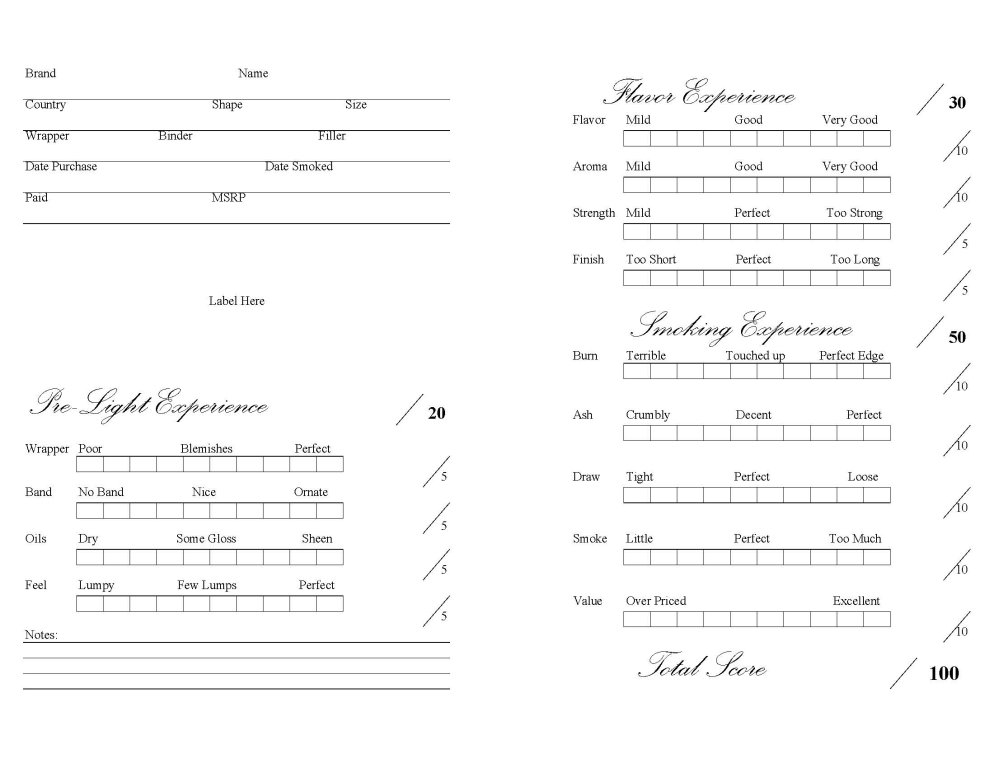 Brand Name
Country Shape Size
Wrapper Binder Filler
Date Purchase Date Smoked
Paid MSRP
Label Here
Pre-Light Experience / 20
Wrapper Poor Blemishes Perfect
/5
Band No Band Nice Ornate
/5
Oils Dry Some Gloss Sheen
/5
Feel Lumpy Few Lumps Perfect
/5
Notes:
Flavor Experience / 30
Flavor Mild Good Very Good
/10
Aroma Mild Good Very Good
/10
Strength Mild Perfect Too Strong
/5
Finish Too Short Perfect Too Long
/5
Smoking Experience / 50
Burn Terrible Touched up Perfect Edge
/10
Ash Crumbly Decent Perfect
/10
Draw Tight Perfect Loose
/10
Smoke Little Perfect Too Much
/10
Value Over Priced Excellent
/10
Total Score / 100